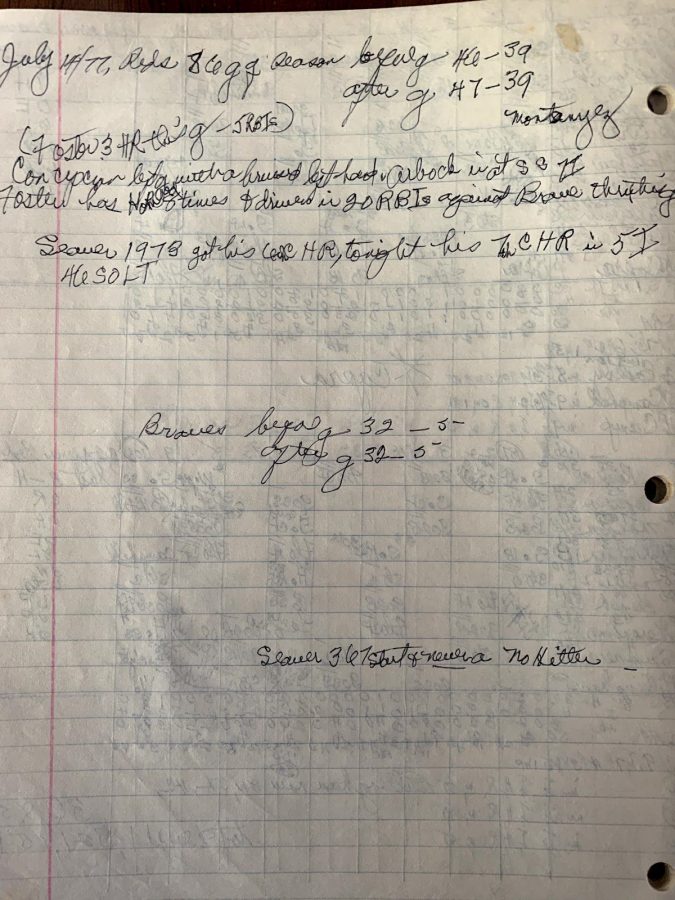 July 14/77, Reds 86 g g season before g 46-39
after g 47-39
Montanyez
(Foster 3 HR this g - 5 RBIs)
Concepcion left g with a bruised left hand, Auerbach in at SS 7 I
Foster has HR 8 times & driven in 20 RBIs against Braves this
Seaver 1978 got his HR, tonight his 7th C HR in 5 I
46 SO LT
Braves before g 32 - 5-
after g 32 - 5-
Seaver 367 start & never a No Hitter -